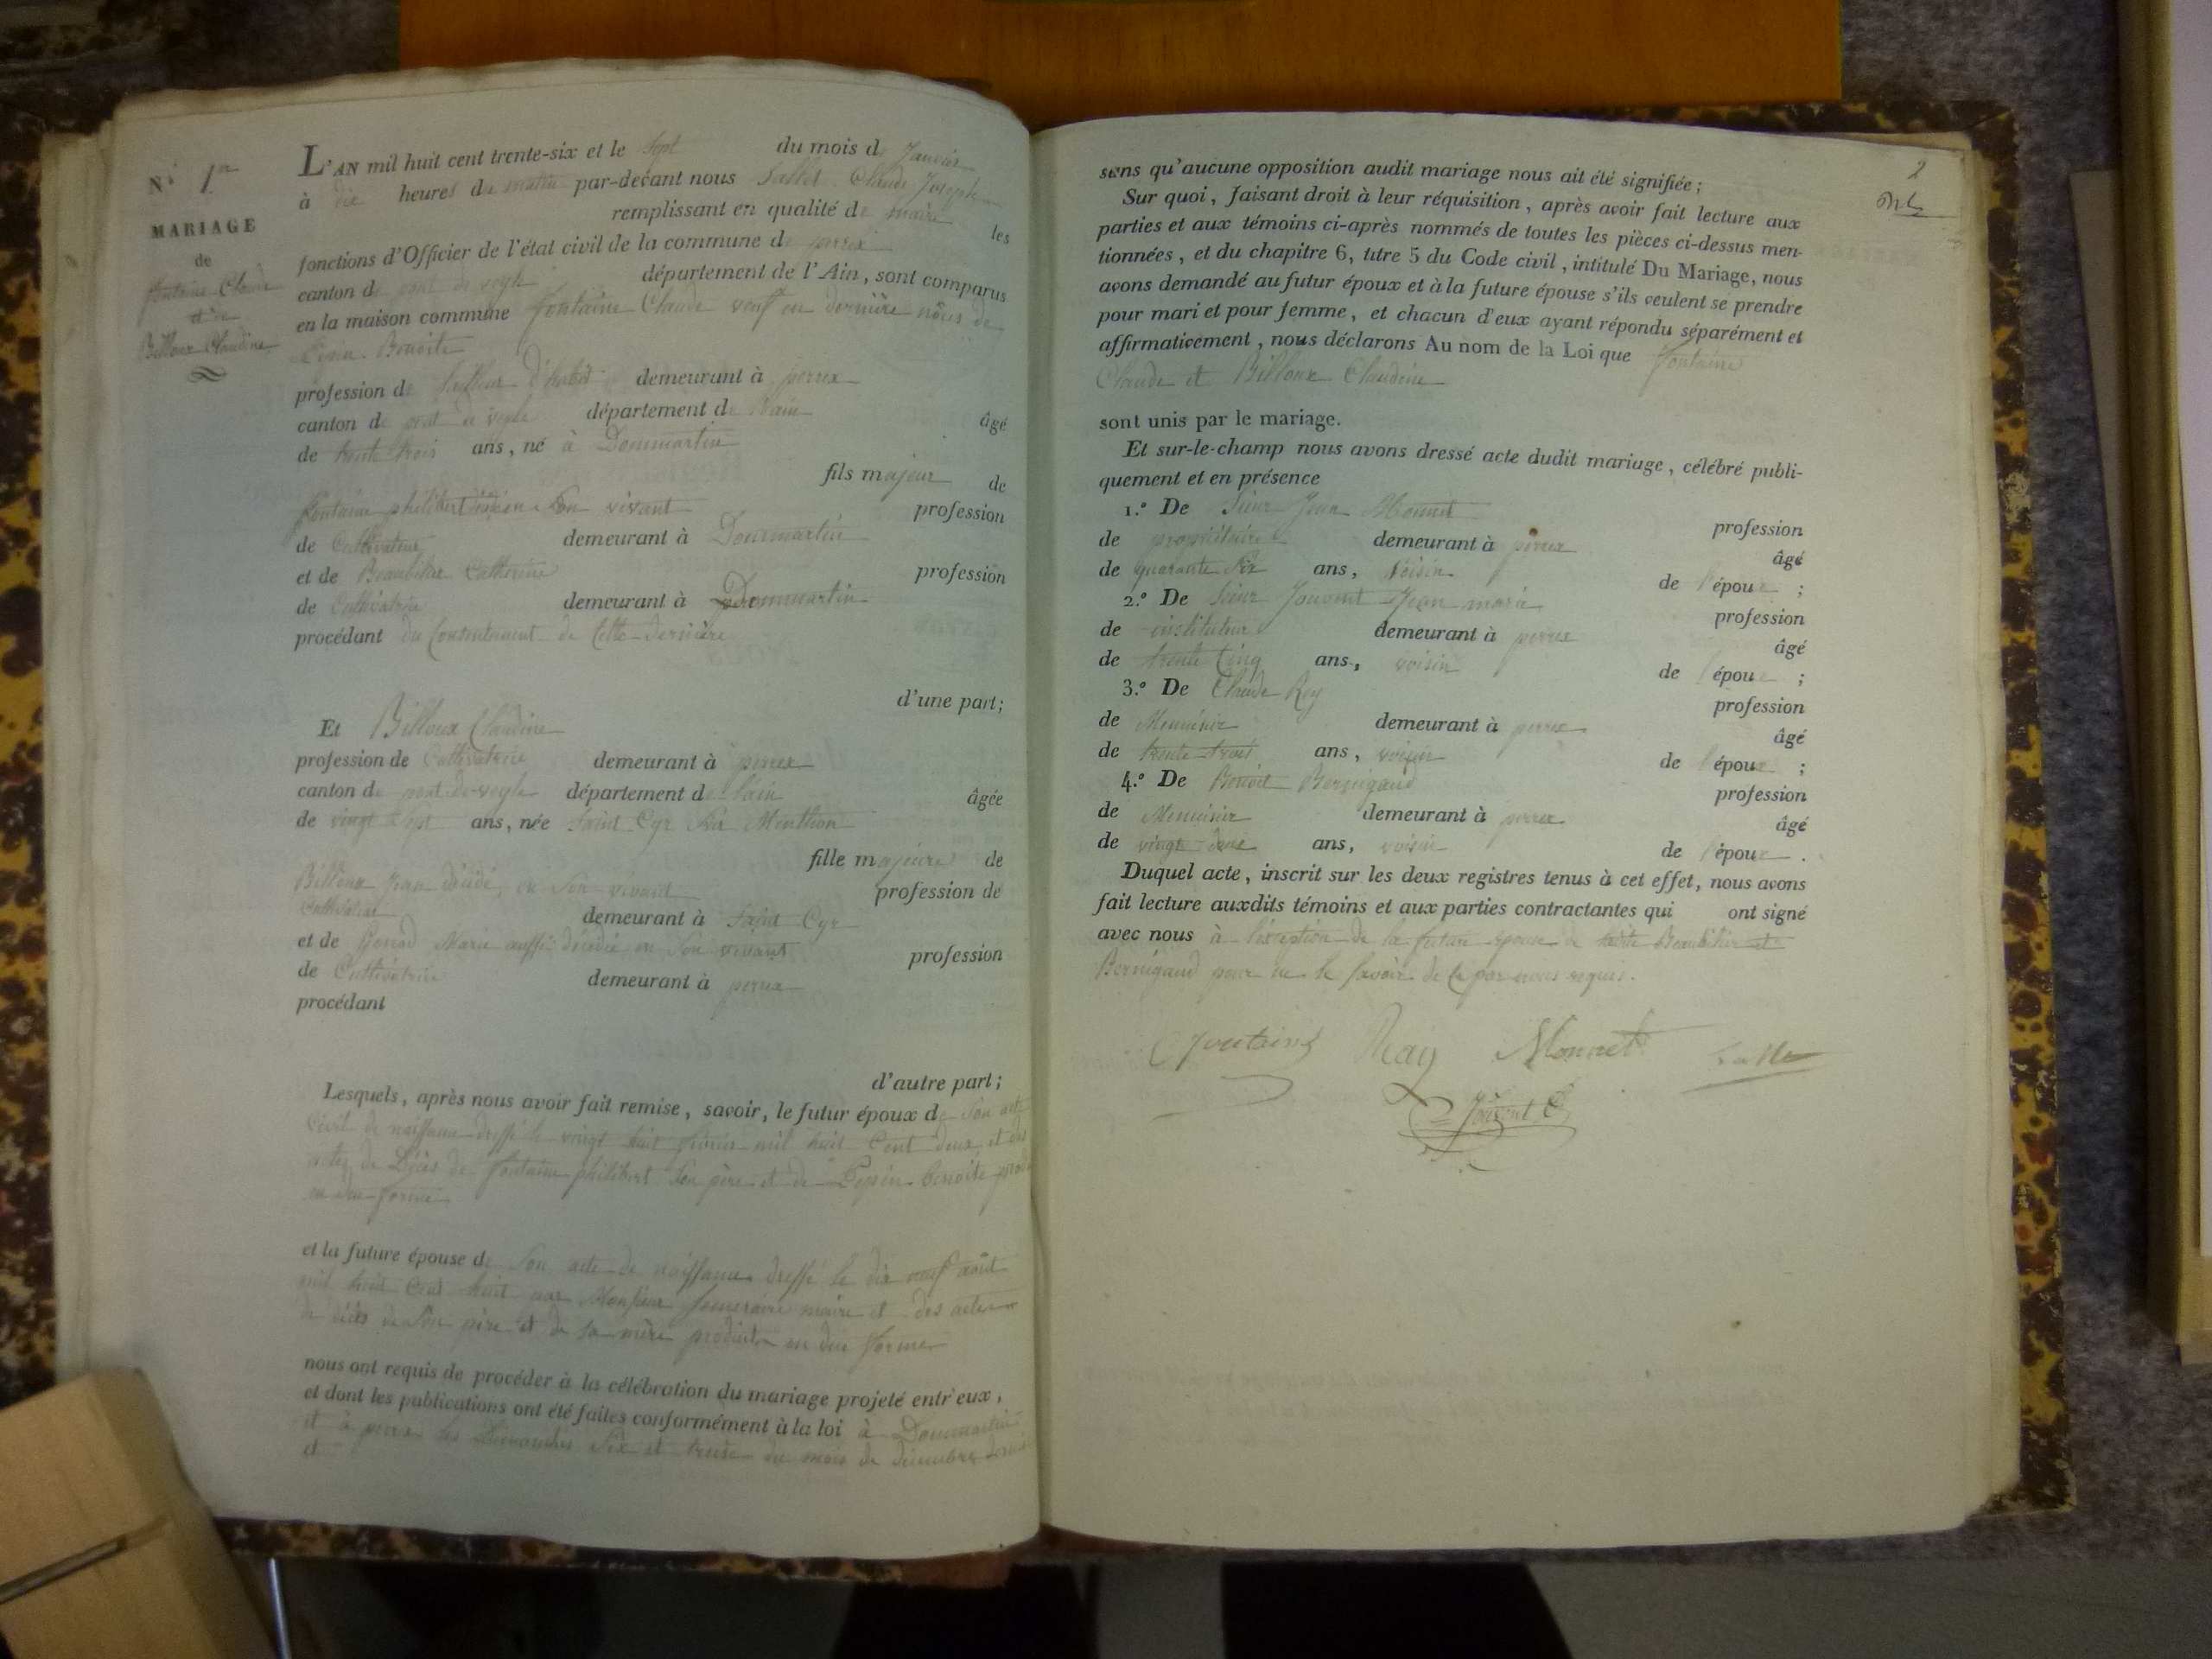 N° 1er
MARIAGE
de
fontaine Claude
et de
Billoux Claudine
L'AN mil huit cent trente-six et le sept du mois de Janvier
à dix heures du matin par-devant nous Sallet Claude Joseph
remplissant en qualité de maire les
fonctions d'Officier de l'état civil de la commune de perrex
canton de pont de veyle département de l'Ain, sont comparus
en la maison commune fontaine Claude veuf en dernière nôces de
Benoite
profession de tailleur d'habit demeurant à perrex
canton de pont de veyle département de l'ain âgé
de trente trois ans, né à Dommartin
fils majeur de
fontaine philibert en son vivant profession
de Cultivateur demeurant à Dommartin
et de Catherine profession
de Cultivatrice demeurant à Dommartin
procédant du Consentement de Cette dernière
d'une part;
Et Billoux Claudine
profession de Cultivatrice demeurant à perrex
canton de pont-de-veyle département de l'ain âgée
de vingt sept ans, née Saint Cyr Sur Menthon
fille majeure de
Billoux Jean décédé, en Son vivant profession de
Cultivateur demeurant à Saint Cyr
et de Marie aussi décédée en Son vivant profession
de Cultivatrice demeurant à perrex
procédant
d'autre part;
Lesquels, après nous avoir fait remise, savoir, le futur époux de Son acte
Civil de naissance dressé le vingt huit mil huit Cent deux et des
actes de Décès de fontaine philibert Son père et de benoite
en due forme
et la future épouse de Son acte de naissance dressé le dix neuf août
mil huit Cent huit par Monsieur maire et des actes
de décès de Son père et de sa mère produits en due forme
nous ont requis de procéder à la célébration du mariage projeté entr'eux,
et dont les publications ont été faites conformément à la loi à Dommartin
et à perrex les Dimanches Six et treize du mois de décembre
d
2
sans qu'aucune opposition audit mariage nous ait été signifiée;
Sur quoi, faisant droit à leur réquisition, après avoir fait lecture aux
parties et aux témoins ci-après nommés de toutes les pièces ci-dessus men-
tionnées, et du chapitre 6, titre 5 du Code civil, intitulé Du Mariage, nous
avons demandé au futur époux et à la future épouse s'ils veulent se prendre
pour mari et pour femme, et chacun d'eux ayant répondu séparément et
affirmativement, nous déclarons Au nom de la Loi que fontaine
Claude et Billoux Claudine
sont unis par le mariage.
Et sur-le-champ nous avons dressé acte dudit mariage, célébré publi-
quement et en présence
1.° De Sieur Jean Monnet profession
de propriétaire demeurant à perrex âgé
de quarante Six ans, Voisin de l'époux ;
2.° De Sieur Jouvent Jean marie profession
de instituteur demeurant à perrex âgé
de trente Cinq ans, voisin de l'époux ;
3.° De Claude Rey profession
de Menuisier demeurant à perrex âgé
de trente trois ans, voisin de l'époux ;
4.° De Benoit Bernigaud profession
de Menuisier demeurant à perrex âgé
de vingt deux ans, voisin de l'époux .
Duquel acte, inscrit sur les deux registres tenus à cet effet, nous avons
fait lecture auxdits témoins et aux parties contractantes qui ont signé
avec nous à l'exception de la future épouse de et
Bernigaud pour ne le Savoir de Ce par nous requis.
Cfontaine Rey Monnet
Jouvent